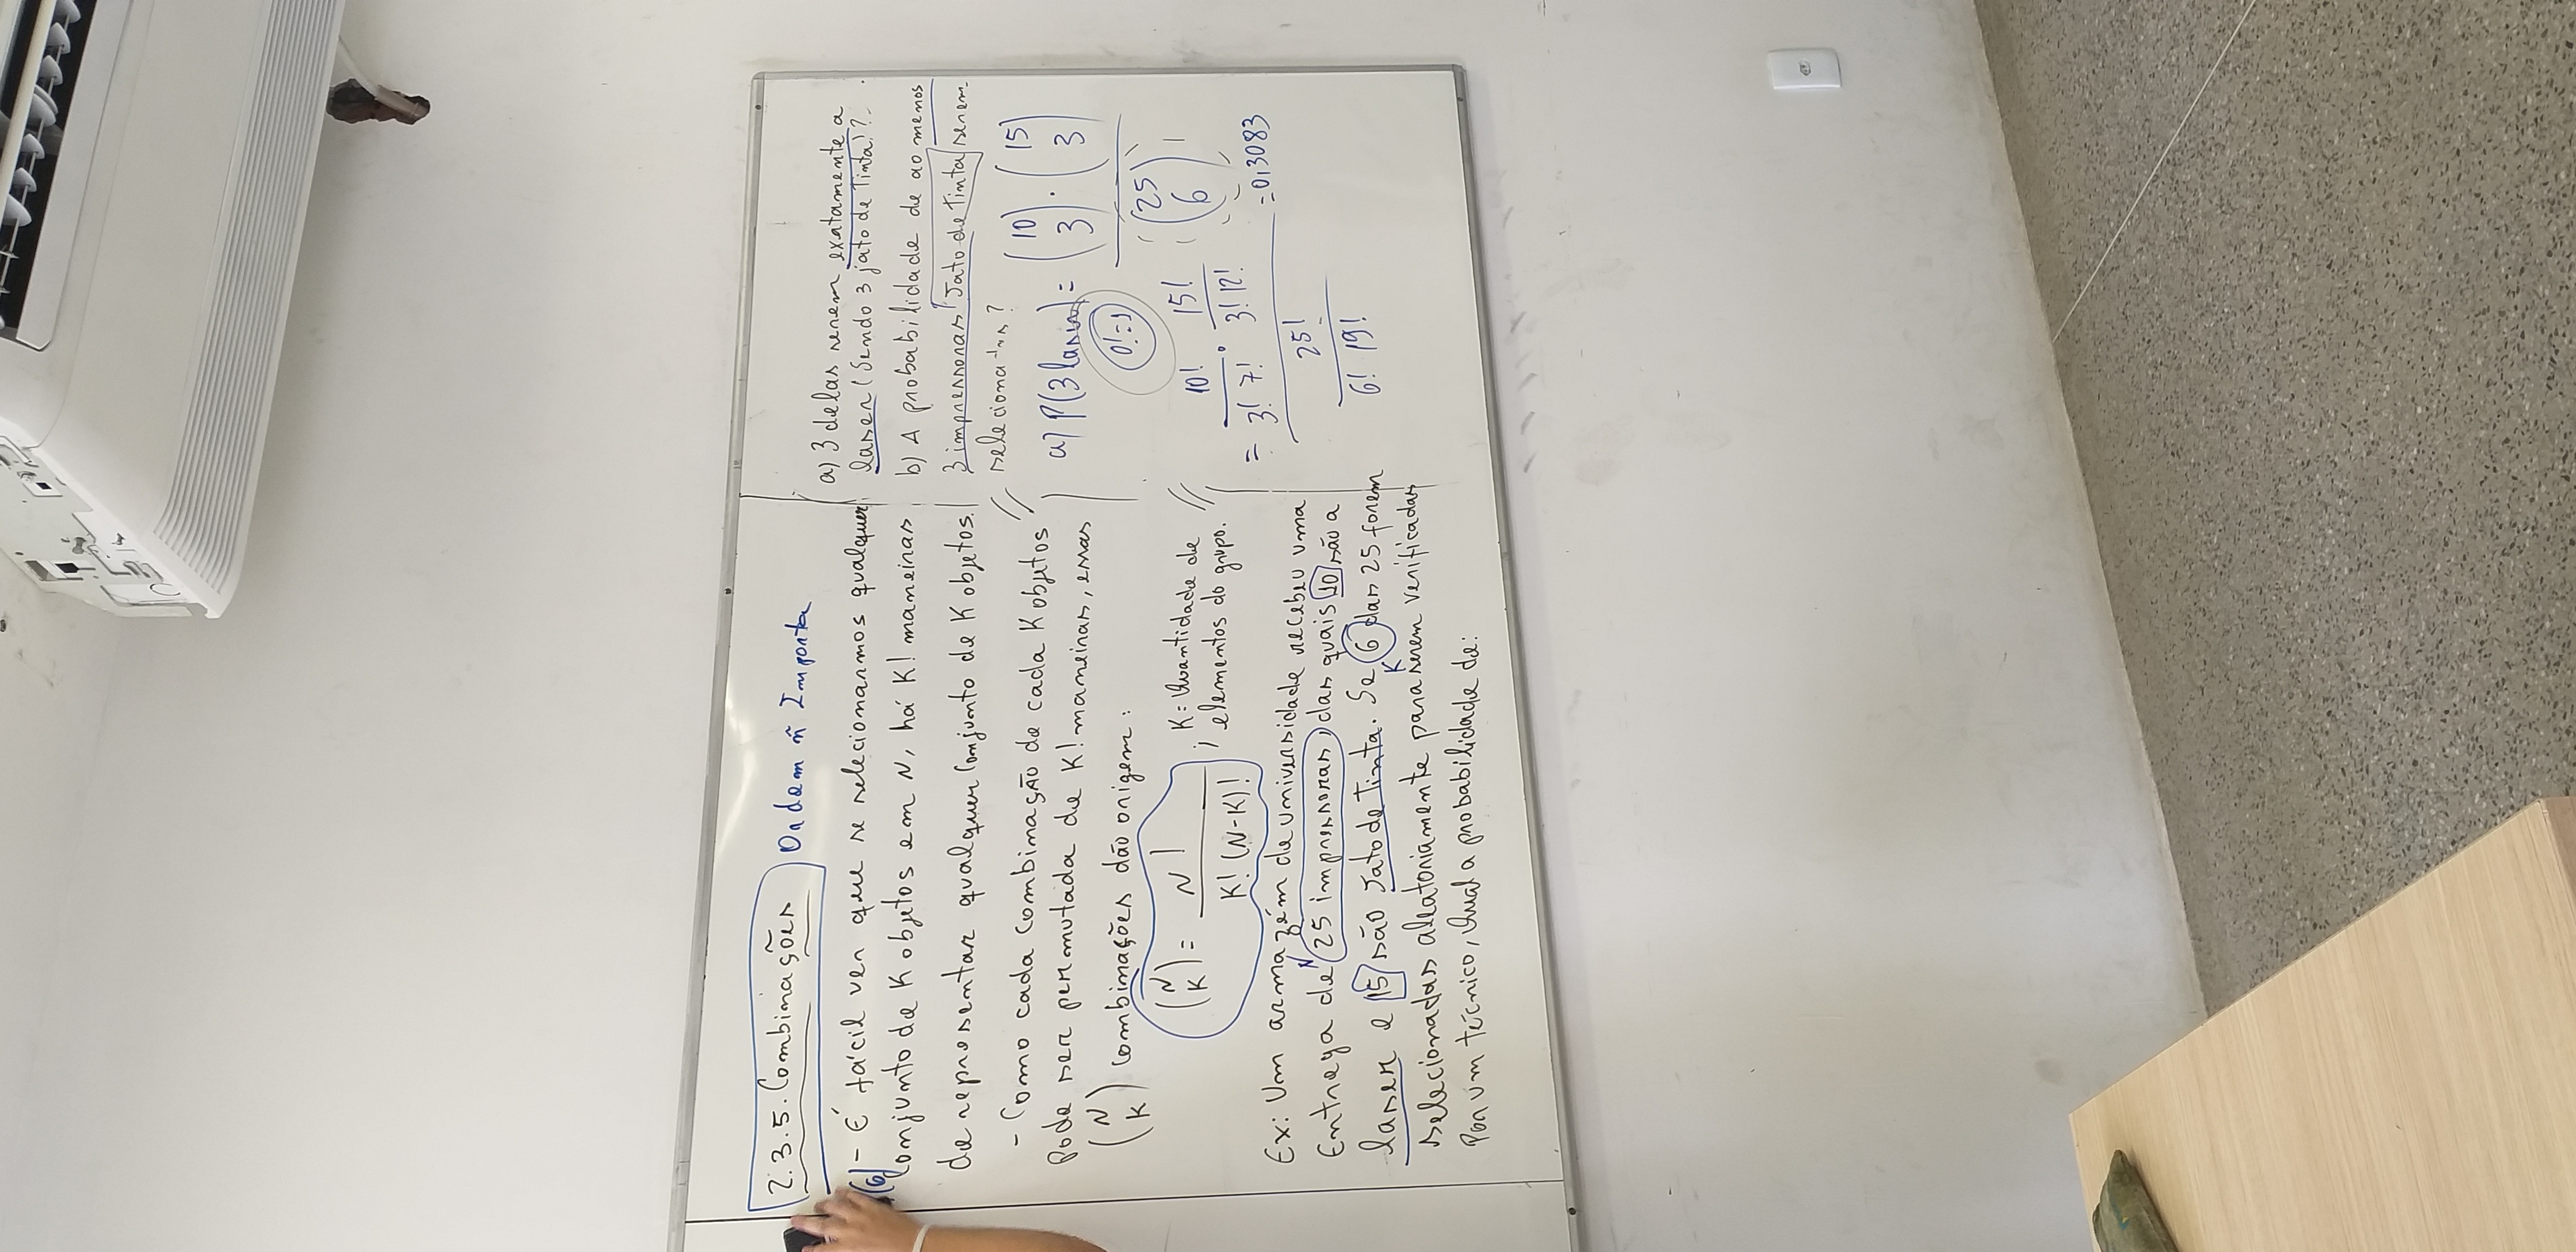 2.3.5. Combinações Ordem ñ Importa
(6) - É fácil ver que se selecionarmos qualquer
Conjunto de K objetos em N, há K! maneiras
de representar qualquer Conjunto de K objetos.
- Como cada combinação de cada K objetos
Pode ser permutada de K! maneiras, essas
(N K) combinações dão origem:
(N K) = N! / K! (N-K)! , K = Quantidade de
elementos do grupo.
Ex: Um armazém de universidade recebeu uma
Entrega de 25 impressoras, das quais 10 são a
N
laser e 15 são Jato de Tinta. Se 6 das 25 forem
K
selecionadas aleatoriamente para serem verificadas
Por um técnico, Qual a probabilidade de:
a) 3 delas serem exatamente a
laser (Sendo 3 jato de Tinta)?
b) A probabilidade de ao menos
3 impressoras Jato de Tinta serem
selecionadas?
a) P(3 laser) = (10 3) · (15 3)
(25 6)
0! = 1
= 10! / 3! 7! · 15! / 3! 12!
= 0,3083
25!
6! 19!